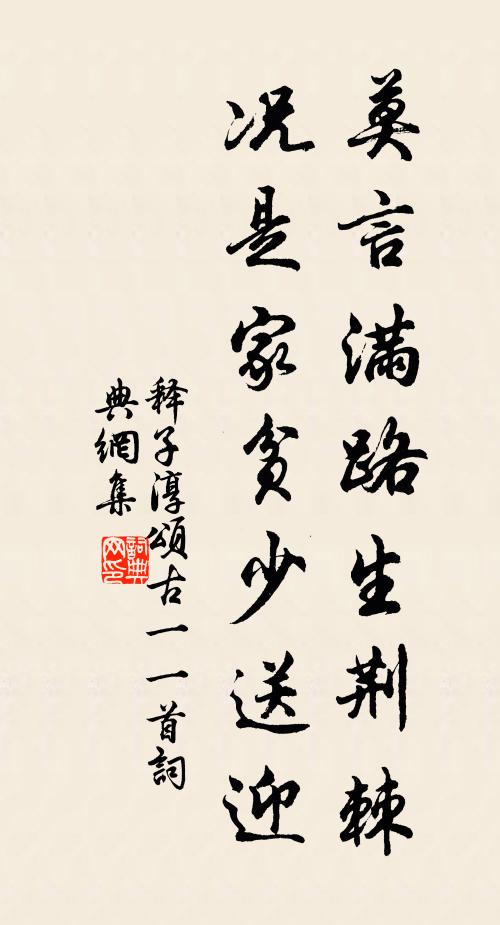 莫言满路生荆棘
况是家贫少送迎
释子淳颂古一一首词
典网集
詞典网印